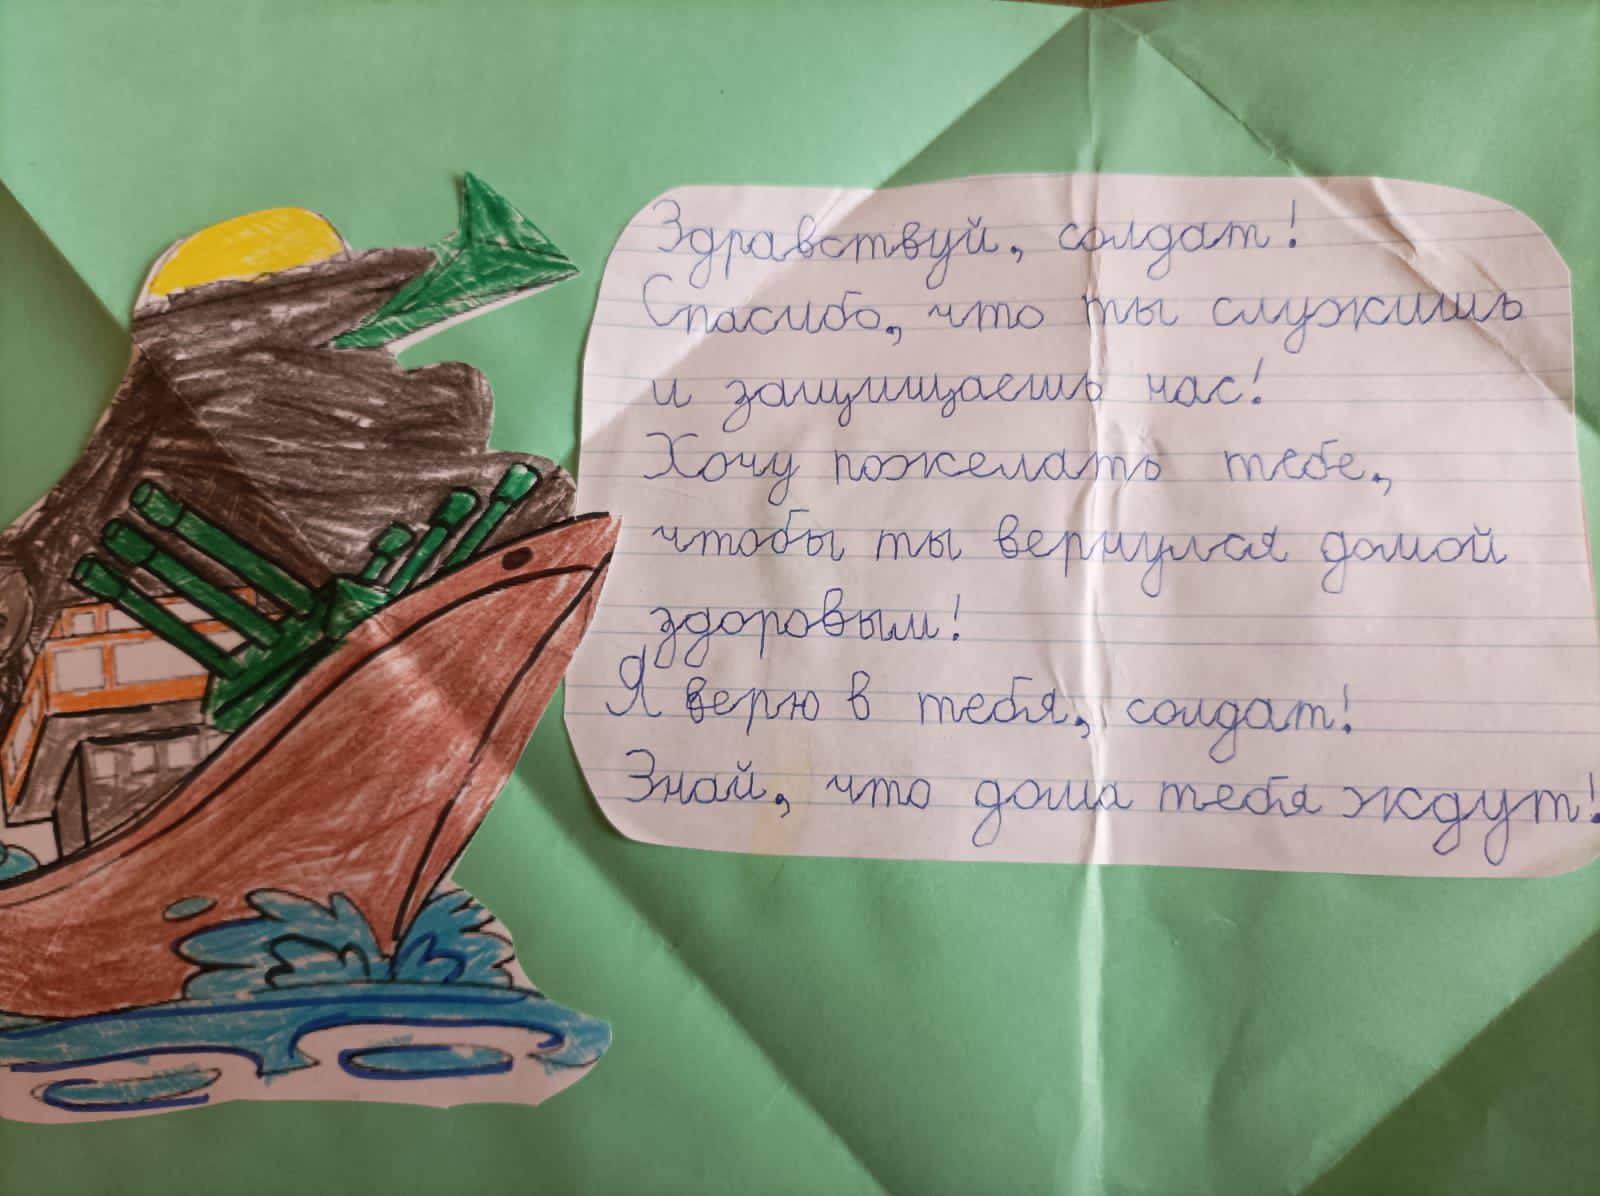 Здравствуй, солдат!
Спасибо, что ты служишь
и защищаешь нас!
Хочу пожелать тебе,
чтобы ты вернулся домой
здоровым!
Я верю в тебя, солдат!
Знай, что дома тебя ждут!